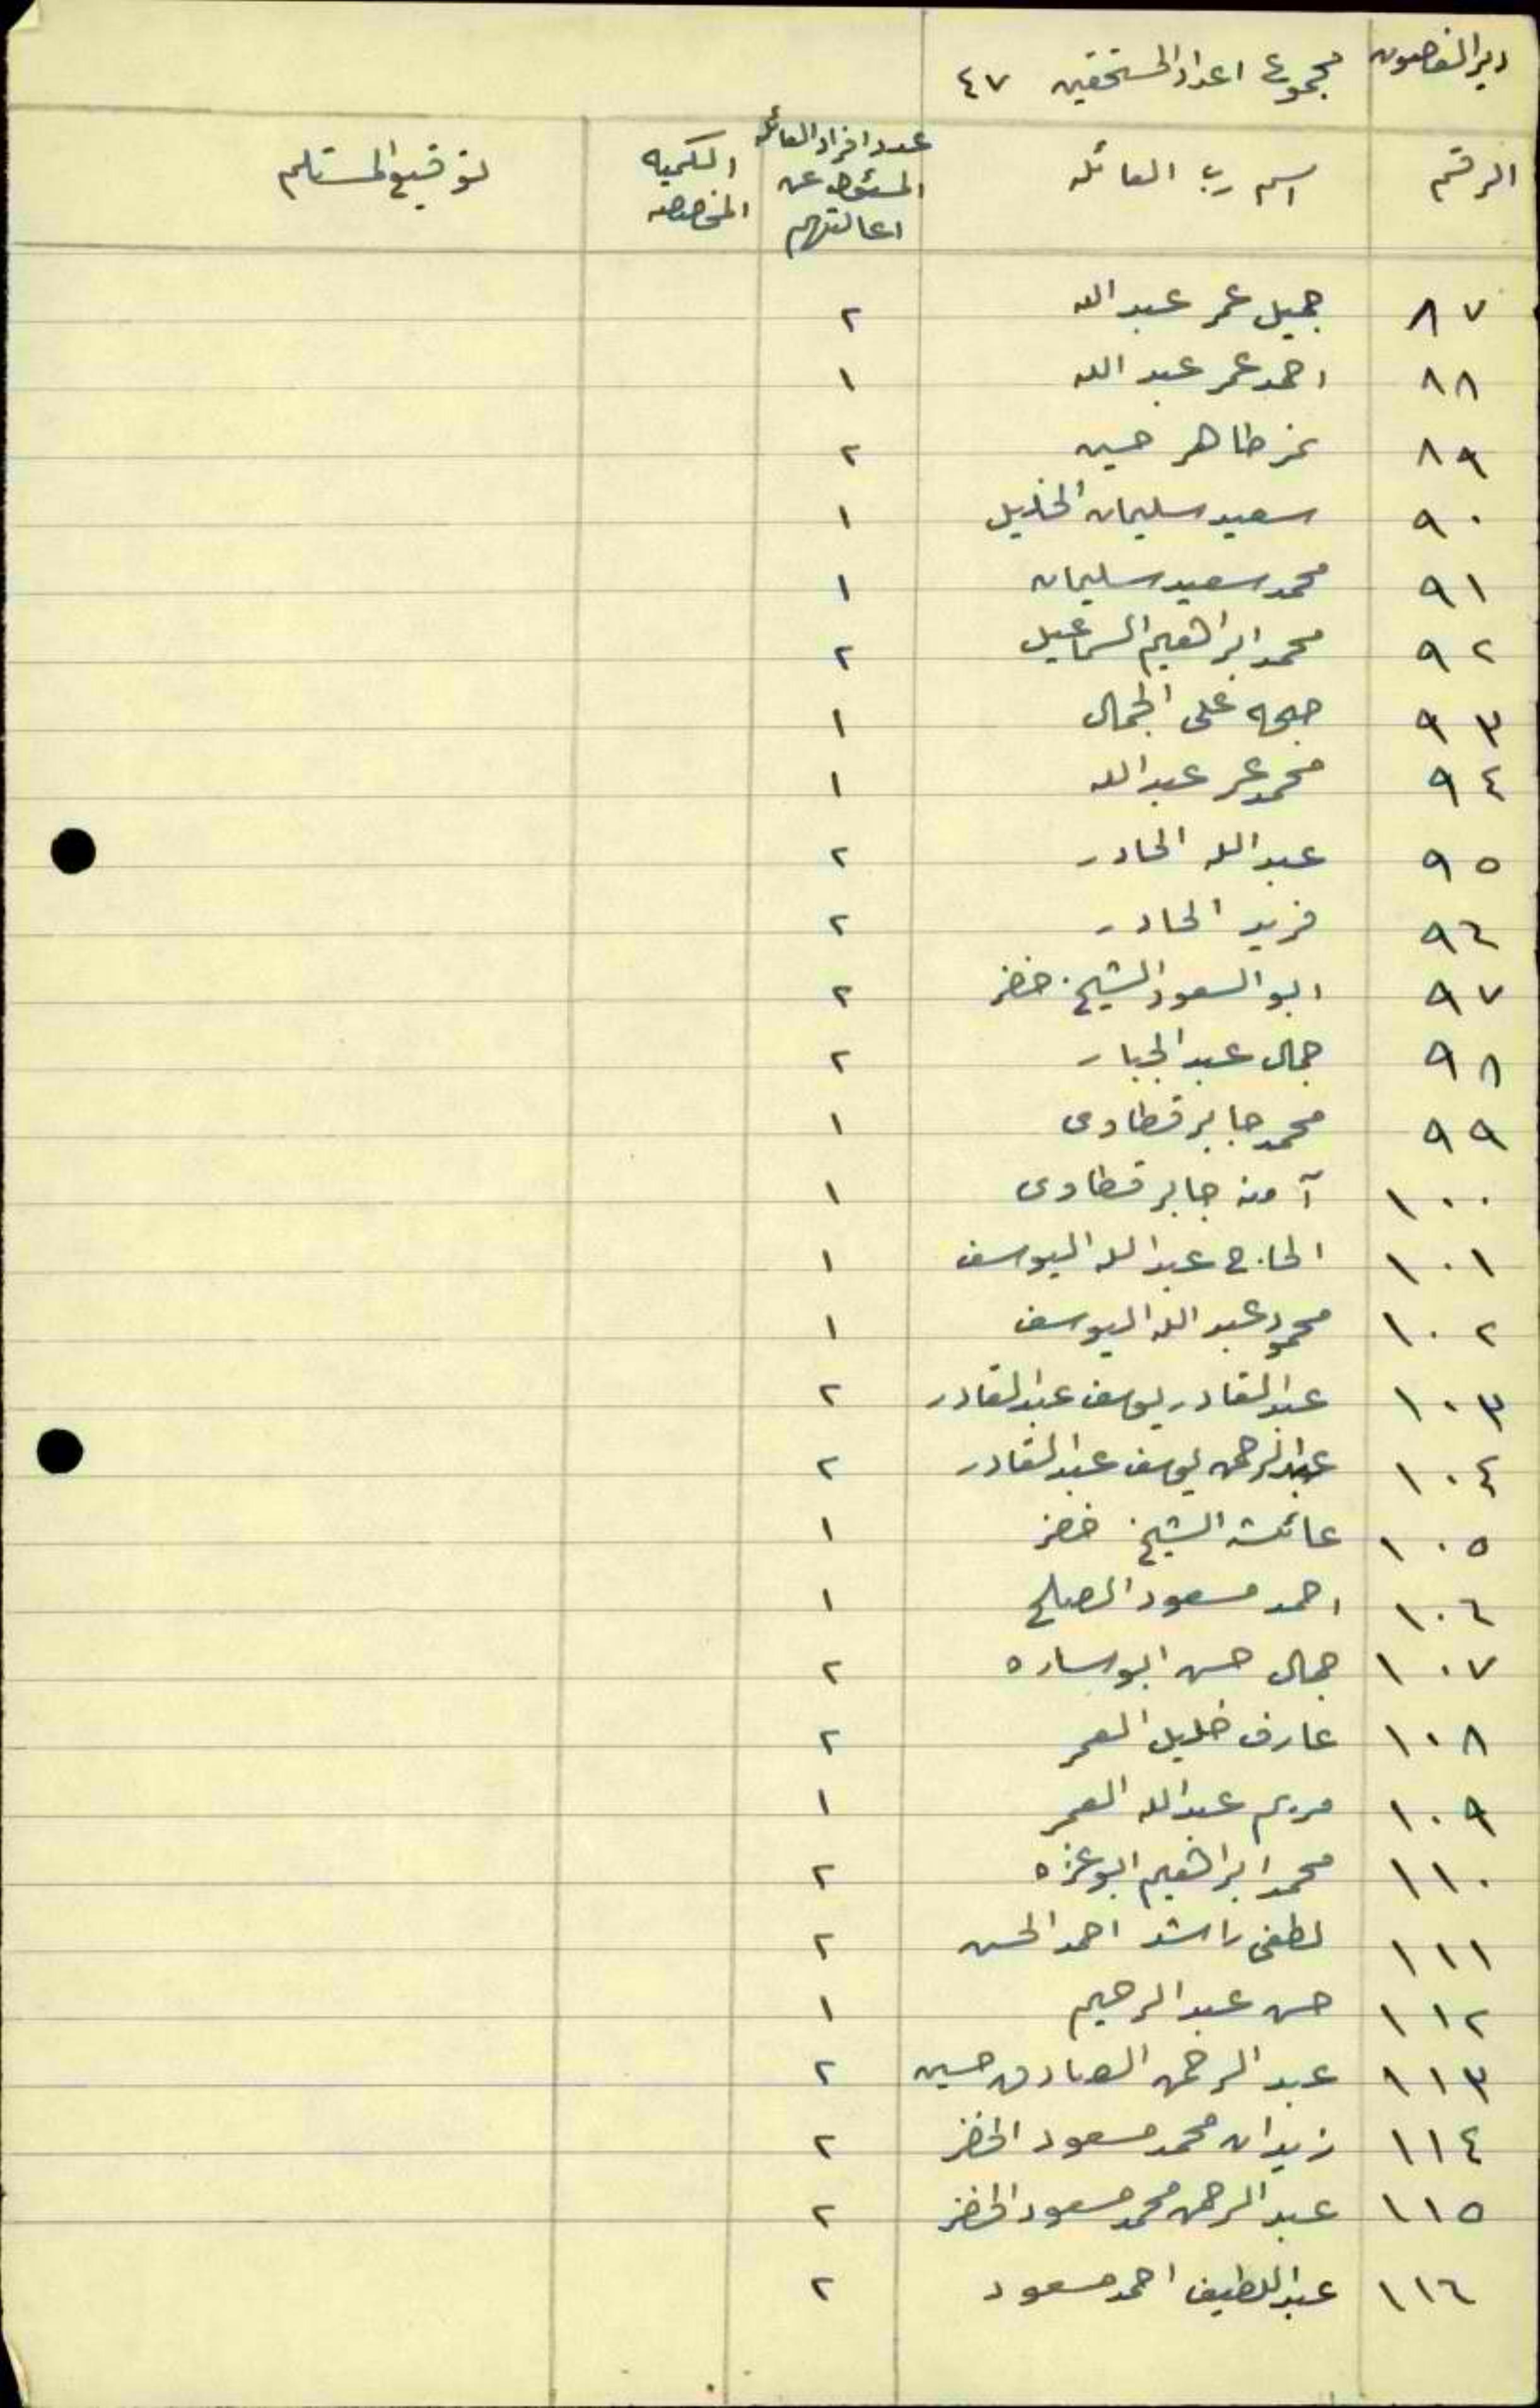 دير الغصون مجموع اعداد المستحقين ٤٧
الرقم اسم رب العائله عدد افراد العائله المسئول عن اعالتهم الكميه المخصصه توقيع المستلم
٨٧ جميل عمر عبد الله ٢
٨٨ احمد عمر عبد الله ١
٨٩ نمر ظاهر حسين ٢
٩٠ سعيد سليمان الخليل ١
٩١ محمد سعيد سليمان ١
٩٢ محمد ابراهيم السماعيل ٢
٩٣ علي الجمال ١
٩٤ محمد عمر عبد الله ١
٩٥ عبد الله الحادر ٢
٩٦ فريد الحادر ٢
٩٧ ابو السعود الشيخ خضر ٢
٩٨ جمال عبد الجبار ٢
٩٩ محمد جابر قطاوى ١
١٠٠ آمنه جابر قطاوى ١
١٠١ الحاج عبد الله اليوسف ١
١٠٢ محمود عبد الله اليوسف ١
١٠٣ عبد القادر يوسف عبد القادر ٢
١٠٤ عبد الرحمن يوسف عبد القادر ٢
١٠٥ عائشه الشيخ خضر ١
١٠٦ احمد مسعود الصلح ١
١٠٧ جمال حسن ابو ساره ٢
١٠٨ عارف خليل العمر ٢
١٠٩ مريم عبد الله العمر ١
١١٠ محمد ابراهيم ابو عزه ٢
١١١ لطفي راشد احمد الحسن ٢
١١٢ حسن عبد الرحيم ١
١١٣ عبد الرحمن الصادق حسين ٢
١١٤ زيدان محمد مسعود الخضر ٢
١١٥ عبد الرحمن محمد مسعود الخضر ٢
١١٦ عبد اللطيف احمد مسعود ٢